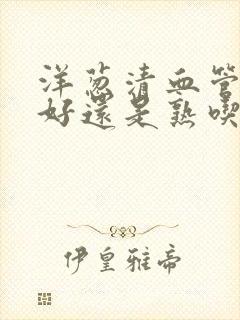 洋葱清血管
好還是熟喫
伊皇雅帝